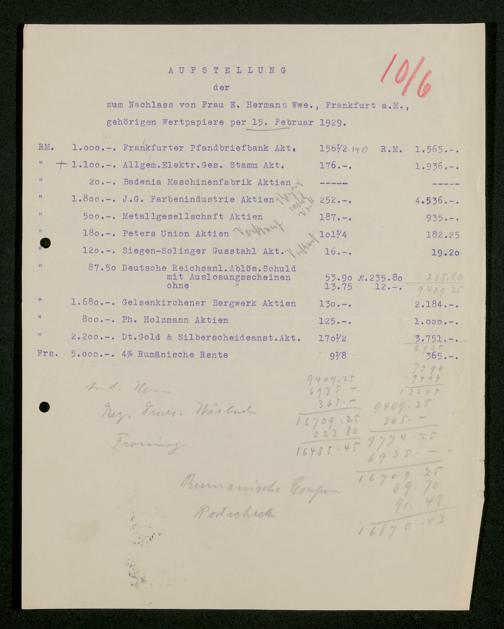 10/6
AUFSTELLUNG
der
zum Nachlass von Frau E. Hermann Wwe., Frankfurt a.M.,
gehörigen Wertpapiere per 15. Februar 1929.
RM. 1.000.-. Frankfurter Pfandbriefbank Akt. 156 1/2 140 R.M. 1.565.-.
" + 1.100.-. Allgem.Elektr.Ges. Stamm Akt. 176.-. 1.936.-.
" 20.-. Badenia Maschinenfabrik Aktien ----- -----
" 1.800.-. J.G. Farbenindustrie Aktien 252.-. 4.536.-.
" 500.-. Metallgesellschaft Aktien 187.-. 935.-.
" 180.-. Peters Union Aktien 101 1/4 182.25
" 120.-. Siegen-Solinger Gusstahl Akt. 16.-. 19.20
" 87.50 Deutsche Reichsanl.Ablös.Schuld
mit Auslosungsscheinen 53.90 R.235.80 235.80
ohne 13.75 12.-. 9409.25
" 1.680.-. Gelsenkirchener Bergwerk Aktien 130.-. 2.184.-.
" 800.-. Ph. Holzmann Aktien 125.-. 1.000.-.
" 2.200.-. Dt.Gold & Silberscheideanst.Akt. 170 1/2 3.751.-.
6935
Frs. 5.000.-. 4% Rumänische Rente 9 1/8 365.-.
9409.25
6935.-
365.-
9409.25
16709.25
365.-
223.80
9774.25
16485.45
6935.-
16709.25
Rumänische Coupon
69.70
91.48
16870.43